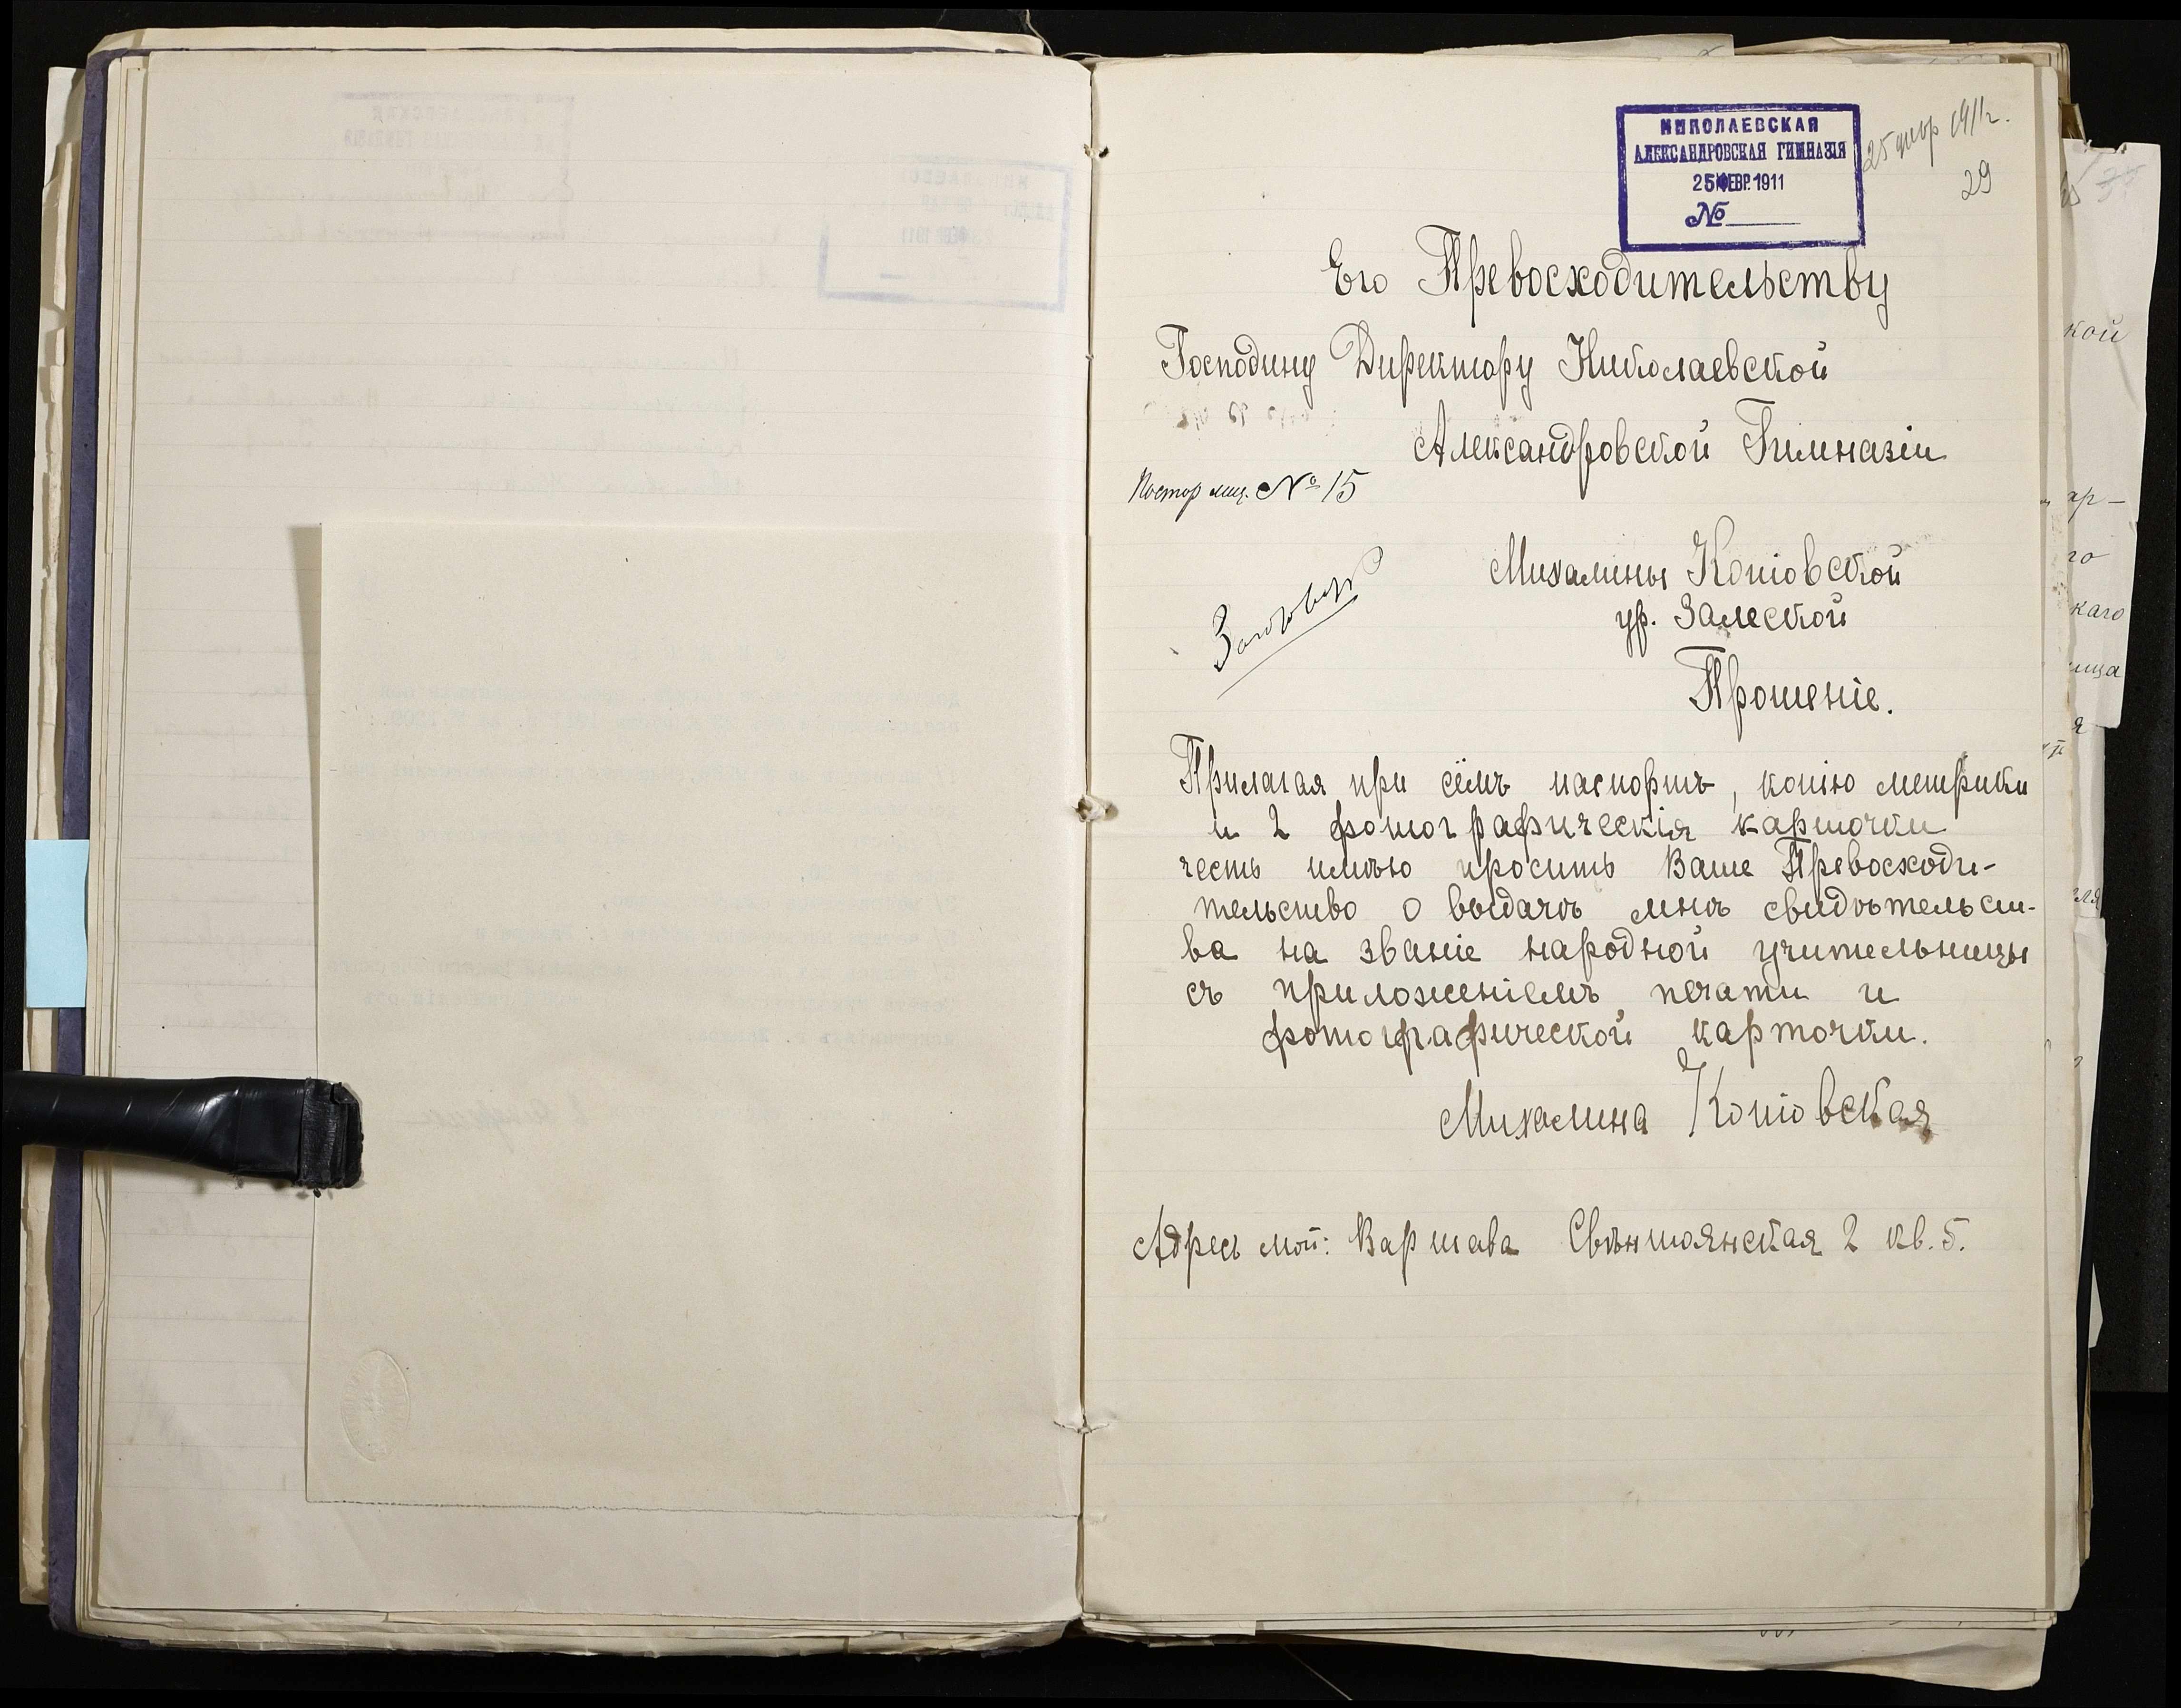 НИКОЛАЕВСКАЯ
АЛЕКСАНДРОВСКАЯ ГИМНАЗІЯ
25 ФЕВР. 1911
№
25 февр 1911 г.
29
Его Превосходительству
Господину Директору Николаевской
Александровской Гимназіи
Постор лиц. № 15
Михалины Копіовской
ур. Залеской
Прошеніе.
Прилагая при сёмъ паспортъ, копію метрики
и 2 фотографическія карточки
честь имѣю просить Ваше Превосходи-
тельство о выдачѣ мнѣ свидѣтельст-
ва на званіе народной учительницы
съ приложеніемъ печати и
фотографической карточки.
Михалина Копіовская
Адресъ мой: Варшава Свѣнтоянская 2 кв. 5.
кой
ар-
го
каго
лица
я